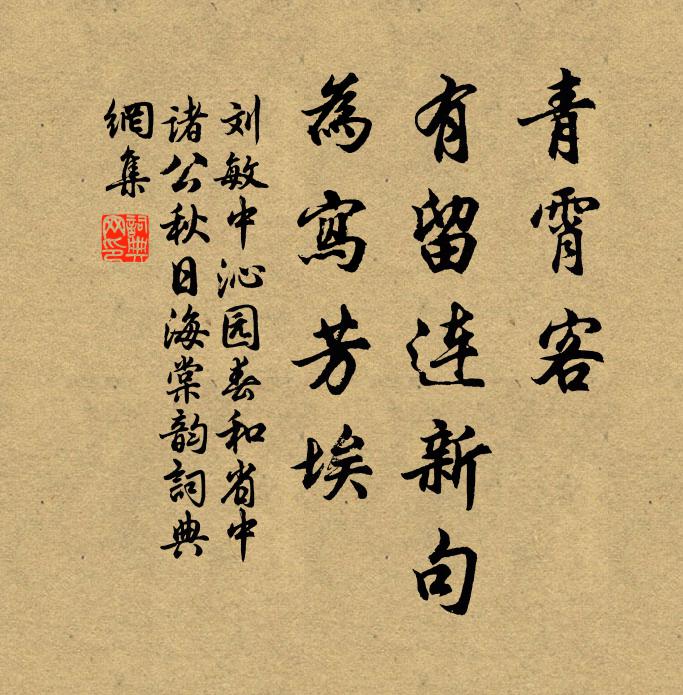 青霄客
有留连新句
為寫芳埃
刘敏中沁园春和省中
诸公秋日海棠韵詞典
網集
詞典
网印